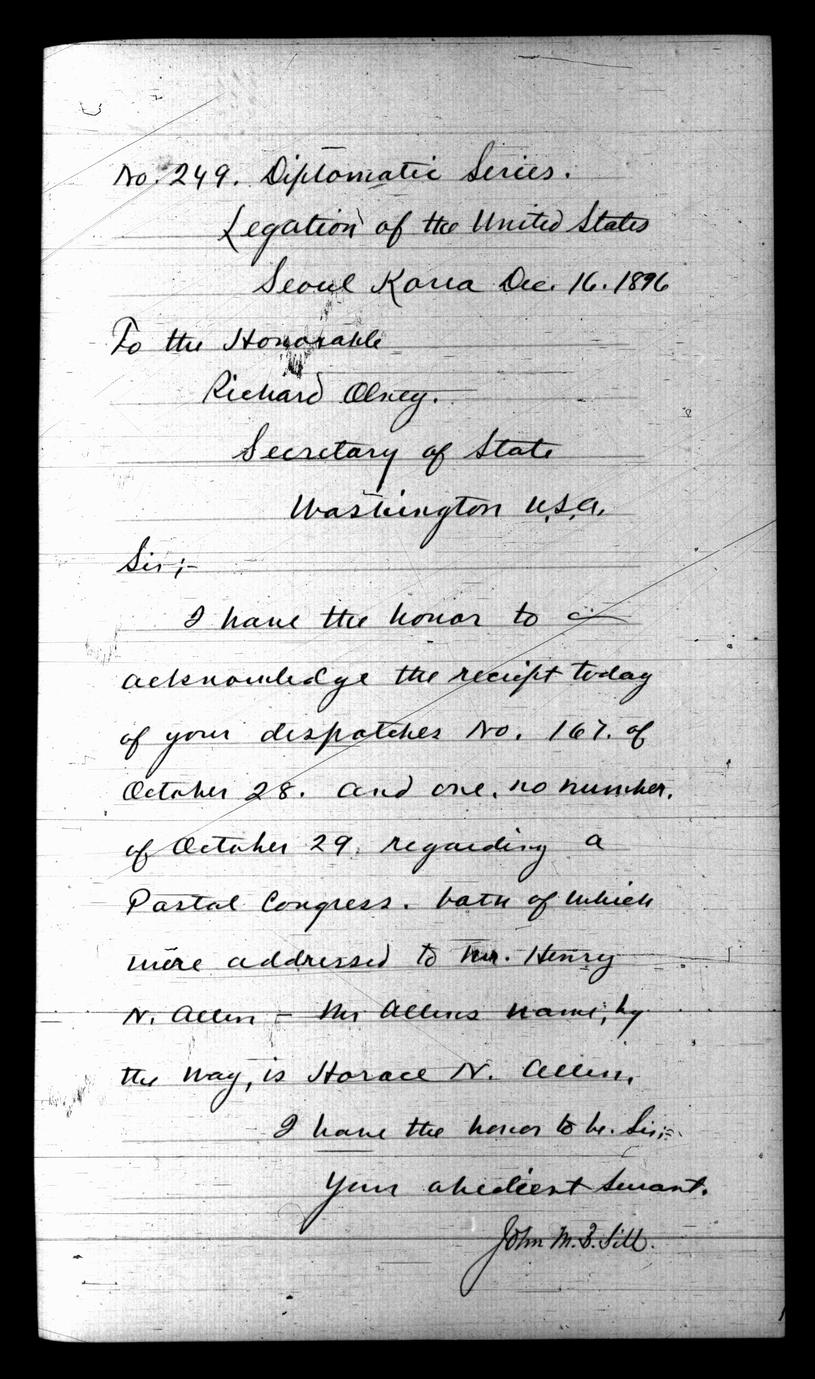 No. 249. Diplomatic Series.
Legation of the United States
Seoul Korea Dec. 16. 1896
To the Honorable
Richard Olney.
Secretary of State
Washington U.S.A.
Sir;-
I have the honor to
acknowledge the receipt today
of your dispatches No. 167. of
October 28. and one, no number,
of October 29. regarding a
Postal Congress. both of which
were addressed to Mr. Henry
N. Allen - Mr Allens name, by
the way, is Horace N. Allen.
I have the honor to be. Sir;-
Your obedient servant.
John M. B. Sill.